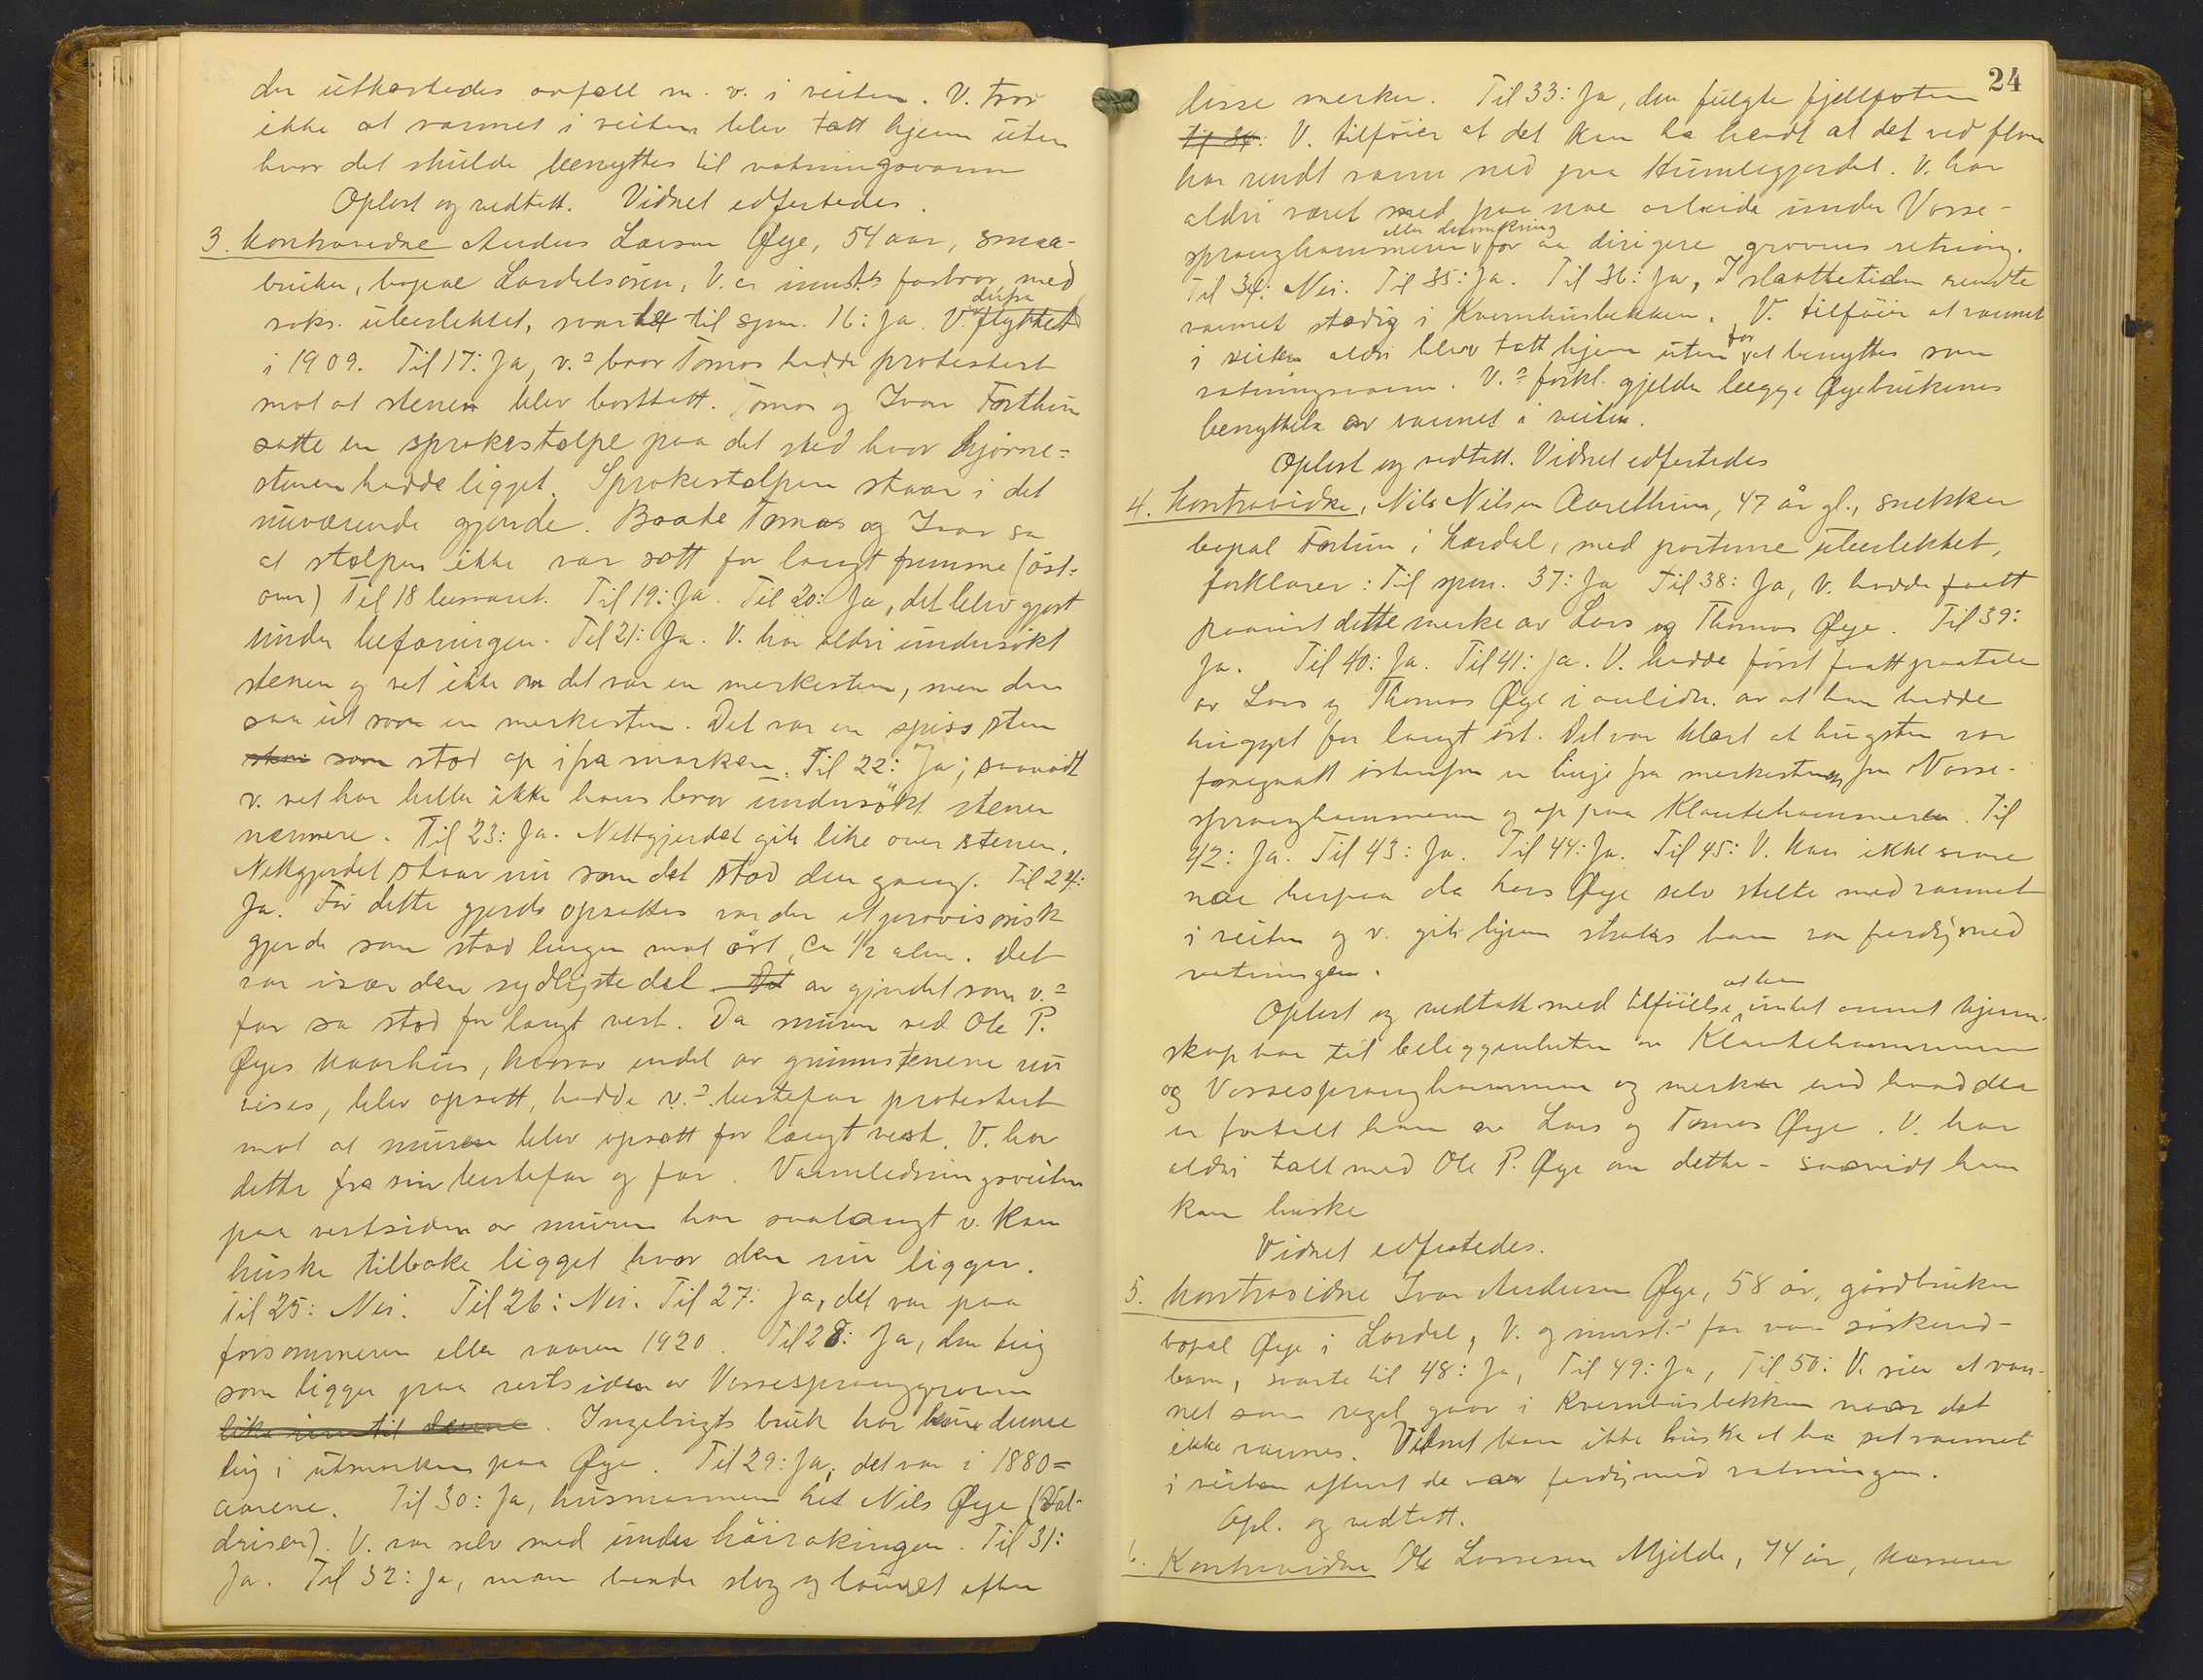 der utkastedes avfall m. v. i veiten. V. tror
ikke at vannet i veiten blev tatt hjem uten
hvor det skulde benyttes til vatningsvann
Oplest og vedtatt. Vidnet edfestedes.
3. Kontravidne Anders Larsen Øye, 54 aar, smaa-
bruker, bopæl Lærdalsøren, V. er innst.s farbror, med
saks. ubeslektet, svarte til spm. 16: Ja. V. flyttet derfra
i 1909. Til 17: Ja, v.s bror Tomas hadde protestert
mot at stenen blev borttatt. Tomas og Ivar Færthun
satte en sprakestolpe paa det sted hvor hjørne-
stenen hadde ligget. Sprakestolpen staar i det
nuværende gjerde. Baade Tomas og Ivar sa
at stolpen ikke var satt for langt framme (øst-
over) Til 18 besvaret. Til 19: Ja. Til 20: Ja, det blev gjort
under befaringen. Til 21: Ja. V. har aldri undersøkt
stenen og vet ikke om det var en merkesten, men den
saa ut som en merkesten. Det var en spiss sten
som stod op ifra marken. Til 22: Ja; og saavidt
v. vet har heller ikke hans bror undersøkt stenen
nærmere. Til 23: Ja. Nettgjerdet gik like over stenen.
Nettgjerdet staar nu som det stod den gang. Til 24:
Ja. Før dette gjerde opsattes var der et provisorisk
gjerde som stod lenger mot øst, ca ½ alen. Det
var især den sydligste del Det av gjerdet som v.s
far sa stod for langt vest. Da muren ved Ole P.
Øyes kaarhus, hvorav endel av grunnstenene nu
vises, blev opsatt, hadde v.s bestefar protestert
mot at muren blev opsatt for langt vest. V. har
dette fra sin bestefar og far. Vannledningsveiten
paa vestsiden av muren har saalangt v. kan
huske tilbake ligget hvor den nu ligger.
Til 25: Nei. Til 26: Nei. Til 27: Ja, det var paa
forsommeren eller vaaren 1920. Til 28: Ja, den teig
som ligger paa vestsiden av Vossespranggroven
like inntil denne. Ingebrigts bruk har kun denne
teig i utmarken paa Øye. Til 29: Ja, det var i 1880-
aarene. Til 30: Ja, husmannen het Nils Øye (Val-
drisen). V. var selv med under høirakingen. Til 31:
Ja. Til 32: Ja, man baade slog og lauvet efter
24
disse merker. Til 33: Ja, den fulgte fjellfoten
Til 34: V. tilføier at det kan ha hendt at det ved flom
har rendt vann ned paa Humlegjerdet. V. har
aldri været med paa noe arbeide under Vosse-
spranghammeren eller deromkring for aa dirigere grovens retning.
Til 34: Nei. Til 35: Ja. Til 36: Ja, I slaattetiden rendte
vannet stadig i Kvernhusbekken. V. tilføier at vannet
i veiten aldri blev tatt hjem uten for at benyttes som
vatningsvann. V.s forkl. gjelder begge Øyebrukenes
benyttelse av vannet i veiten.
Oplest og vedtatt. Vidnet edfestedes
4. Kontravidne, Nils Nilsen Aarethun, 47 år gl., snekker
bopæl Færtun i Lærdal, med partene ubeslektet,
forklarer: Til spm. 37: Ja Til 38: Ja, V. hadde faatt
paavist dette merke av Lars og Thomas Øye. Til 39:
Ja. Til 40: Ja. Til 41: Ja. V. hadde først faatt paatale
av Lars og Thomas Øye i anledn. av at han hadde
hugget for langt øst. Det var klart at hugsten var
foregaatt østenfor en linje fra merkestenen fra Vosse-
spranghammeren og op paa Klautehammeren. Til
42: Ja. Til 43: Ja. Til 44: Ja. Til 45: V. kan ikke svare
noe herpaa da Lars Øye selv stelte med vannet
i veiten og v. gik hjem straks han var ferdig med
vatningen.
Oplest og vedtatt med tilføielse at han intet annet kjenn-
skap har til beliggenheten av Klautehammeren
og Vossespranghammeren og merker end hvad der
er fortalt ham av Lars og Tomas Øye. V. har
aldri talt med Ole P. Øye om dette - saavidt han
kan huske
Vidnet edfestedes.
5. Kontravidne Ivar Andersen Øye, 58 år, gårdbruker
bopæl Øye i Lærdal, V. og innst.s far var søskend-
barn, svarte til 48: Ja, Til 49: Ja, Til 50: V. sier at van-
net som regel gaar i Kvernhusbekken naar det
ikke vannes. Vidnet kan ikke huske at ha set vannet
i veiten efterat de var ferdig med vatningen.
Opl. og vedtatt.
6. Kontravidne Ole Larsen Mjelde, 74 år, kasserer